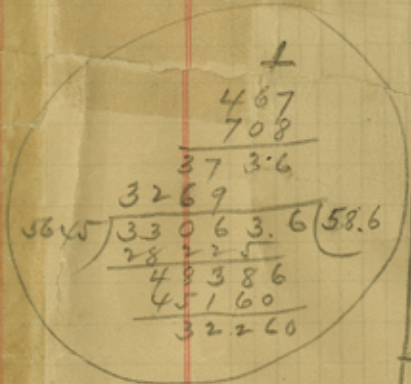 1
467
708
37 3.6
3269
5645)33063.6(58.6
28225
48386
45160
32260